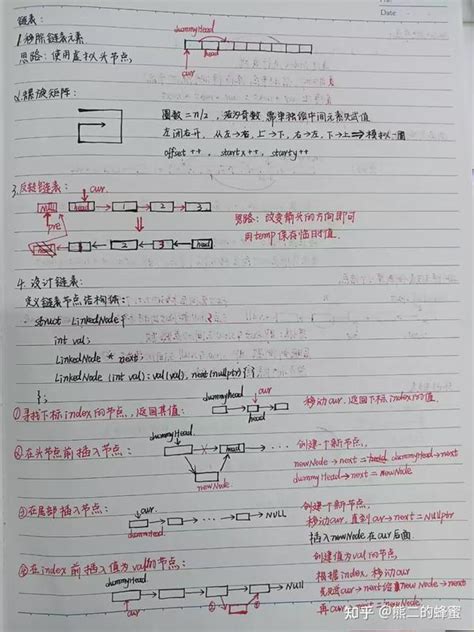 链表:
1.移除链表元素
dummyHead
head
cur
思路:使用虚拟头节点,
2.螺旋矩阵:
圈数=n/2,若为奇数,需单独给中间元素赋值
左闭右开,从左→右,上→下,右→左,下→上⇒模拟一圈
offset++, startx++, starty++
3.反转链表:
cur
NULL head 1 2 3
pre
思路:改变箭头的方向即可
用temp保存临时值.
3 2 1 head
4.设计链表:
定义链表节点结构体:
struct LinkedNode{
int val;
LinkedNode * next;
LinkedNode (int val): val(val), next(nullptr){}
};
①寻找下标index的节点,返回其值:
dummyhead cur
head
移动cur,返回下标index的值.
②在头节点前插入节点:
dummyHead
head
newNode
创建个新节点,
newNode→next = dummyHead→next
dummyHead→next = newNode
③在尾部插入节点:
cur
NULL
创建个新节点,
移动cur,直到cur→next = nullptr
插入newNode在cur后面
④在index前插入值为val的节点:
dummyHead
cur
NULL
创建值为val的节点
根据index,移动cur
再cur→next = newNode
知乎 @熊二的蜂蜜